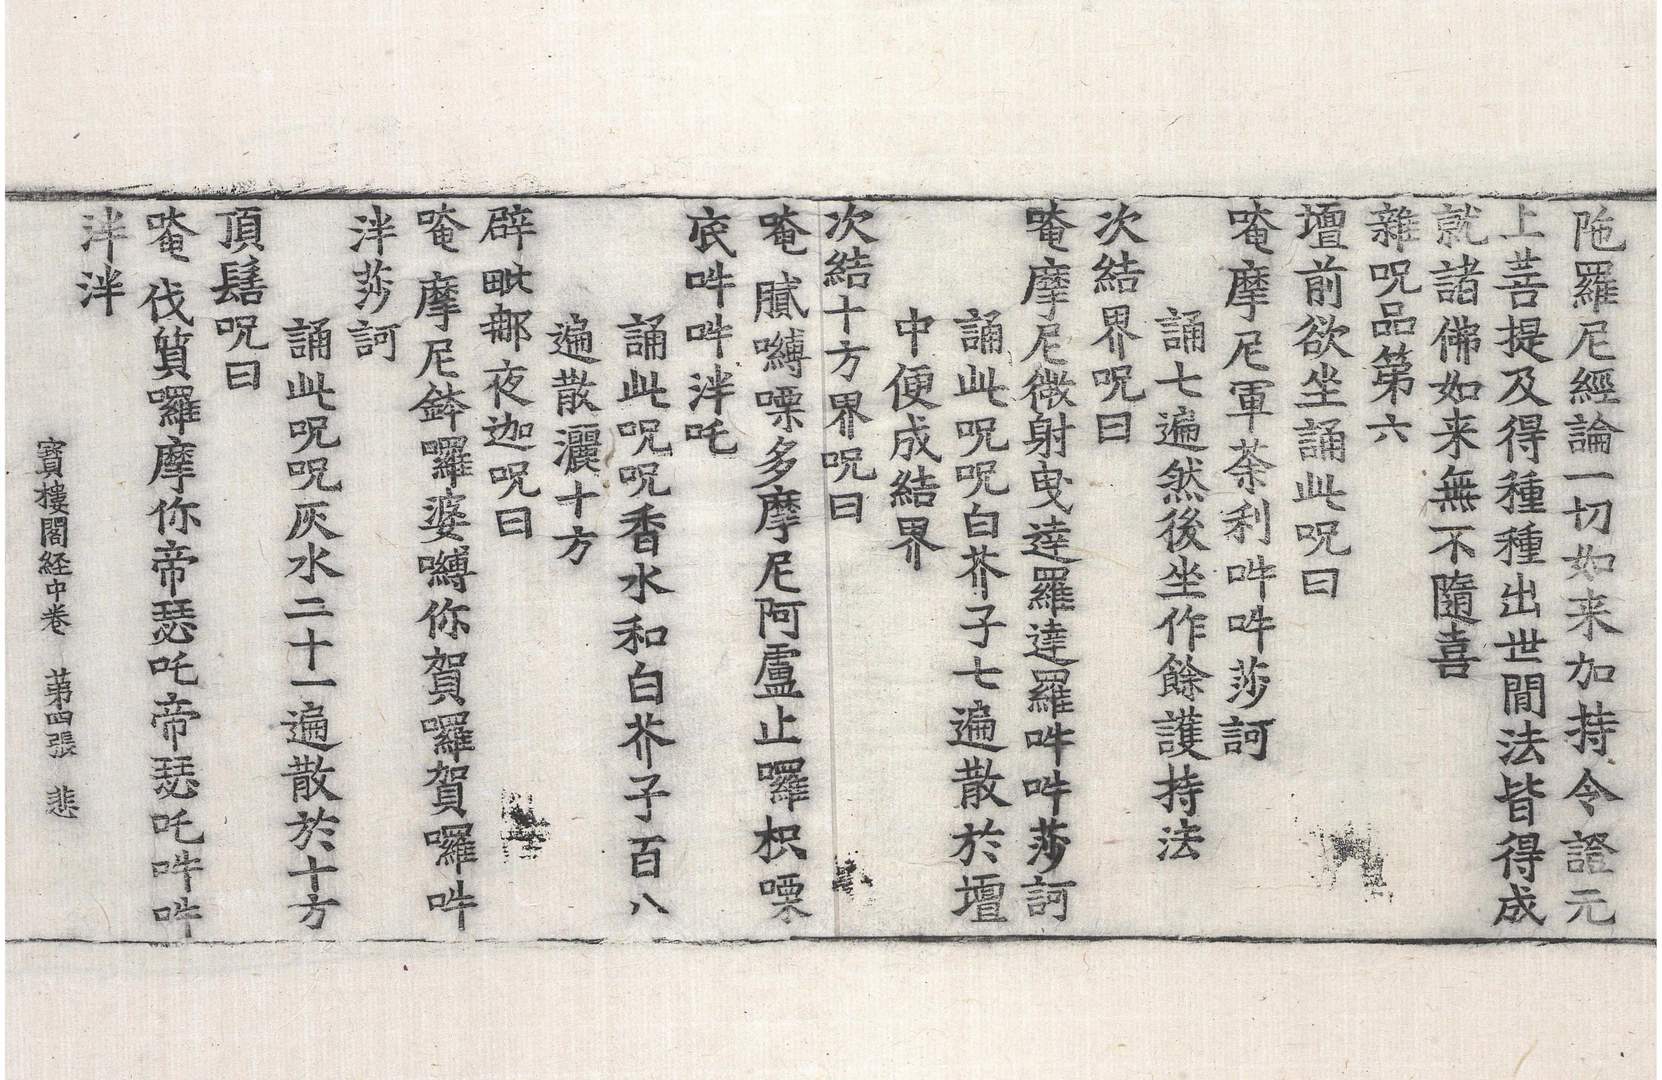 陁羅尼經論一切如来加持令證元
上菩提及得種種出世間法皆得成
就諸佛如来無不隨喜
雜呪品第六
壇前欲坐誦此呪曰
唵摩尼軍荼利吽吽莎訶
誦七遍然後坐作餘護持法
次結界呪曰
唵摩尼微射曳達羅達羅吽吽莎訶
誦此呪呪白芥子七遍散於壇
中便成結界
次結十方界呪曰
唵膩嚩㗚多摩尼阿盧止囉枳㗚
底吽吽泮吒
誦此呪呪香水和白芥子百八
遍散灑十方
辟毗那夜迦呪曰
唵摩尼鉢囉婆嚩你賀囉賀囉吽
泮莎訶
誦此呪呪灰水二十一遍散於十方
頂髻呪曰
唵伐質囉摩你帝瑟吒帝瑟吒吽吽
泮泮
寳樓閣経中卷 苐四張 悲